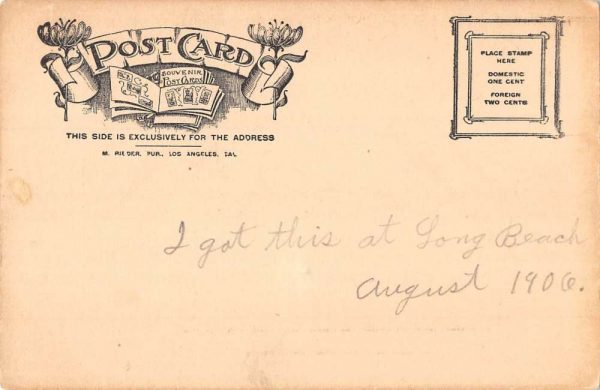 POST CARD
SOUVENIR
POST CARDS
THIS SIDE IS EXCLUSIVELY FOR THE ADDRESS
M. RIEDER, PUB., LOS ANGELES, CAL.
PLACE STAMP
HERE
DOMESTIC
ONE CENT
FOREIGN
TWO CENTS
I got this at Long Beach
August 1906.